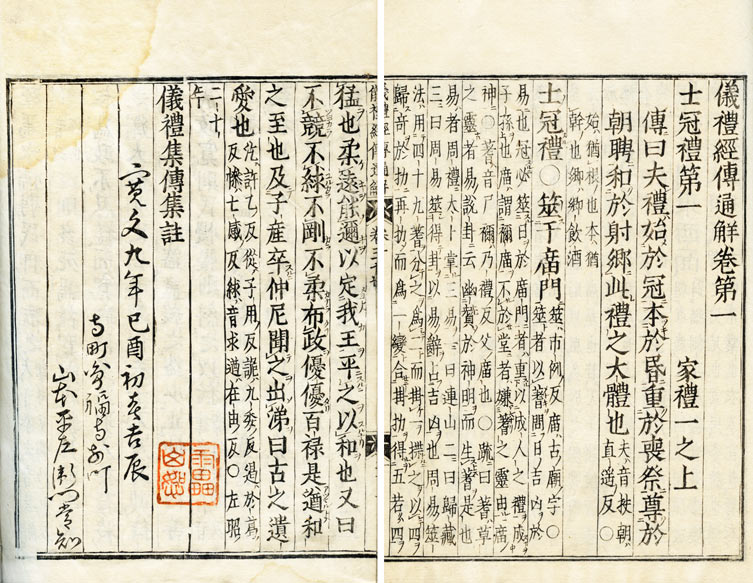 儀禮經傳通解卷第一
士冠禮第一　家禮一之上
傳曰夫禮始於冠本於昏重於喪祭尊於
朝聘和於射鄉此禮之大體也
夫音扶朝
直遙反○
始猶根也本猶
幹也鄉鄉飲酒
士冠禮○筮于庿門
筮市例反庿古廟字○
筮者以蓍問日吉凶於
易也冠必筮日於庿門者重以成人之禮成
子孫也庿謂禰庿不於堂者嫌蓍之靈由庿
神○蓍音尸禰乃禮反父庿也○疏曰蓍草
之靈者易說卦云幽贊於神明而生蓍是也
易者周禮大卜掌三易一曰連山二曰歸藏
三曰周易筮得卦以易辭占吉凶也周易筮
法用四十九蓍分之為二而掛一揲之以四
歸奇於扐再扐而為一變合掛扐得五若四
猛也柔遠能邇以定我王平之以和也又曰
不競不絿不剛不柔布政優優百祿是遒和
之至也及子產卒仲尼聞之出涕曰古之遺
愛也
汔許乙反從子用反詭九委反遏於葛
反慘七感反絿音求遒在由反○左昭
二十
年
儀禮集傳集註
寛文九年己酉初冬吉辰
山本平左衛門常知